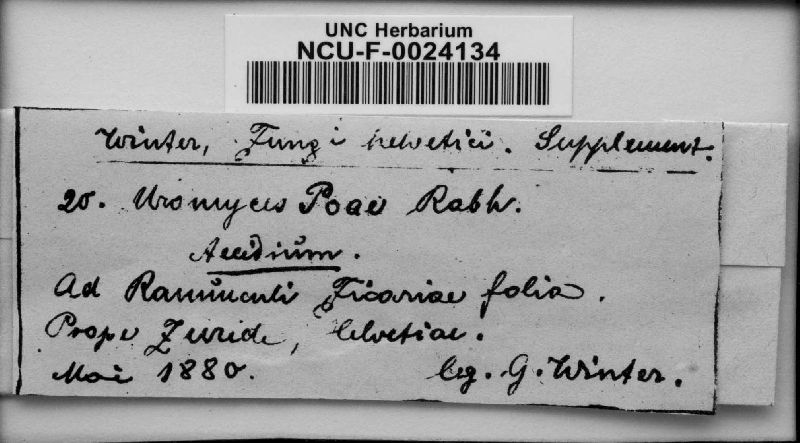 UNC Herbarium
NCU-F-0024134
Winter, Fungi helvetici. Supplement.
20. Uromyces Poae Rabh.
Aecidium.
Ad Ranunculi Ficariae folia.
Prope Zurich, helvetiae.
Mai 1880. leg. G. Winter.